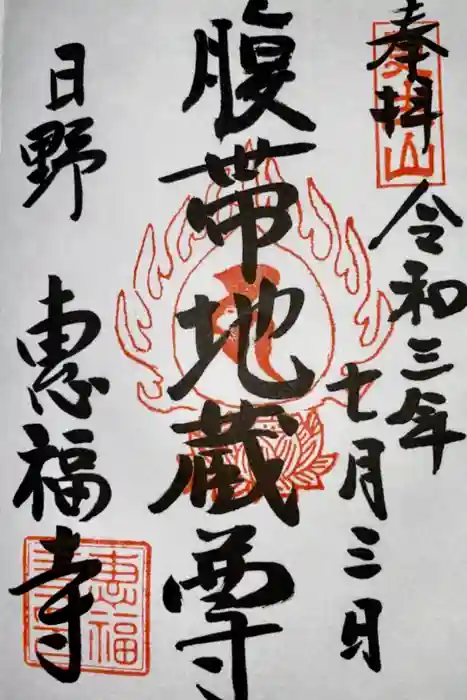 奉拝
令和三年
七月三日
腹帯地蔵尊
日野 恵福寺
恵福